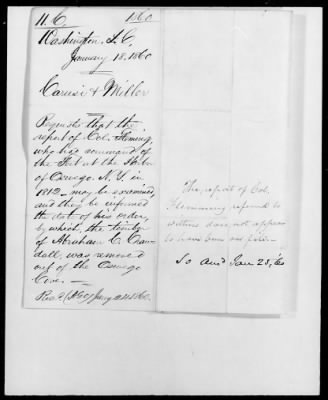 H. C. 1860
Washington, D. C.
January 18. 1860
Carusi & Miller
Requests that the
report of Col. Fleming,
who had command of
the Fort at the Harbor
of Oswego. N. Y. in
1812 may be examined,
and they be informed
the date of his order,
by which, the timber
of Abraham C. Cran-
dall, was removed
out of the Oswego
Cove. —
Rec'd (AGO) Jany 21. 1860.
The report of Col.
Flemming referred to
within does not appear
to have been on file. —
So ansd Jan 23, '60